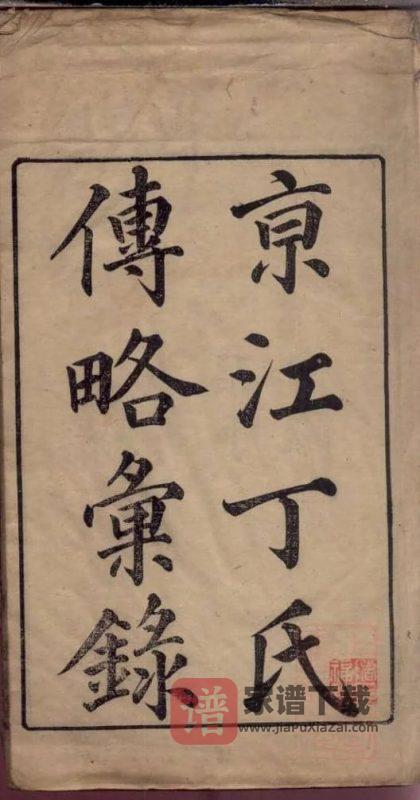 京江丁氏
傳略彙錄
谱 家谱下载
www.jiapuxiazai.com